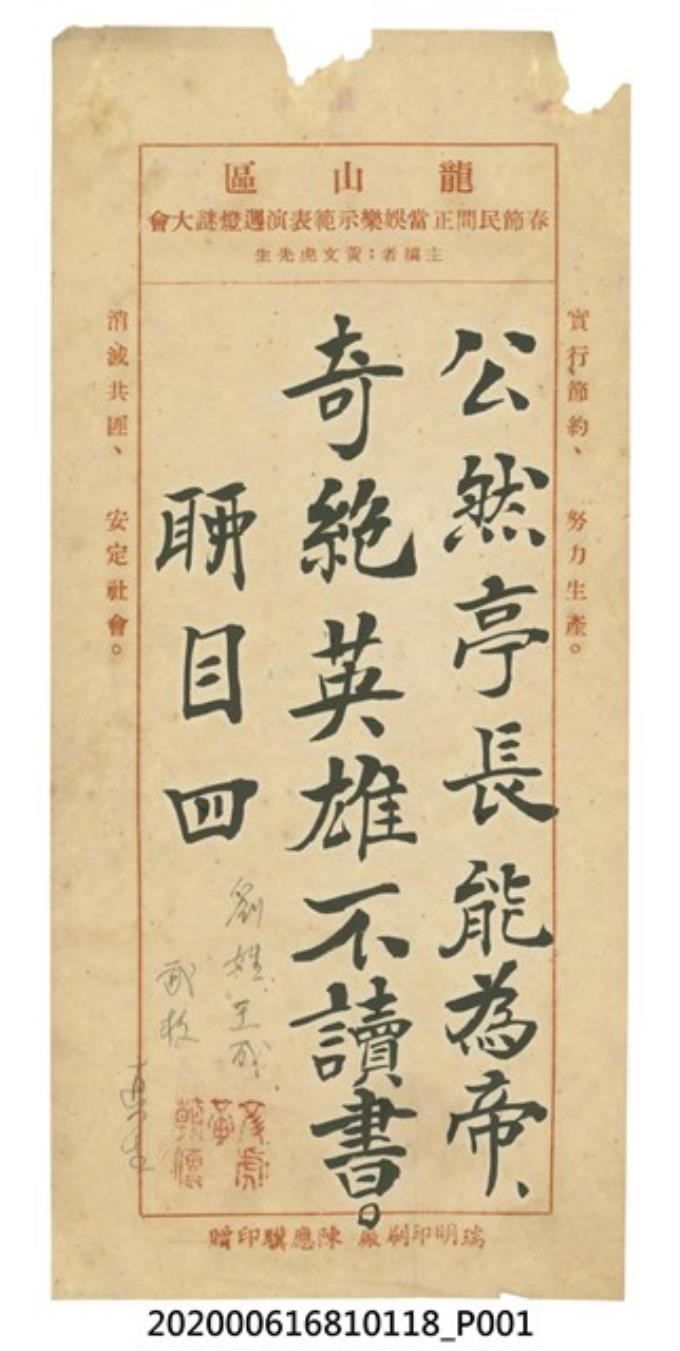 龍山區
春節民間正當娛樂示範表演週燈謎大會
主稿者：黃文虎先生
實行節約、 努力生產。
公然亭長能為帝、
奇絶英雄不讀書。
聊目四
劉姓
消滅共匪、 安定社會。
瑞明印刷廠 陳應騏印贈
202000616810118_P001